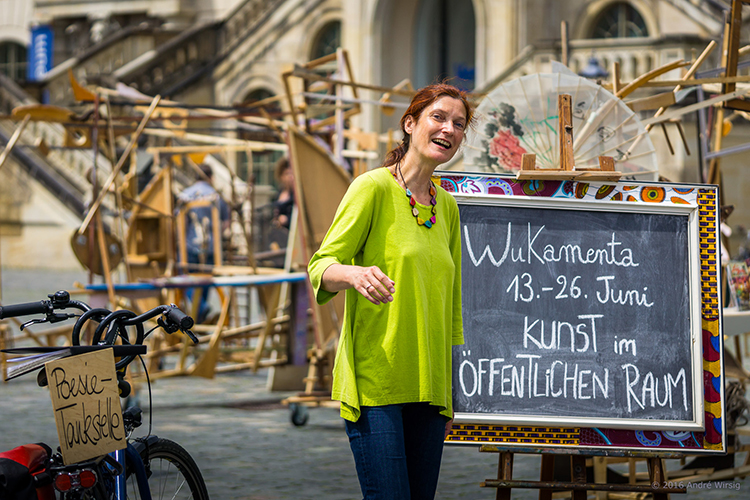 WuKamenta
13.-26. Juni
KUNST im
ÖFFENTLICHEN RAUM
Poesie-
Tankstelle
© 2016 André Wirsig